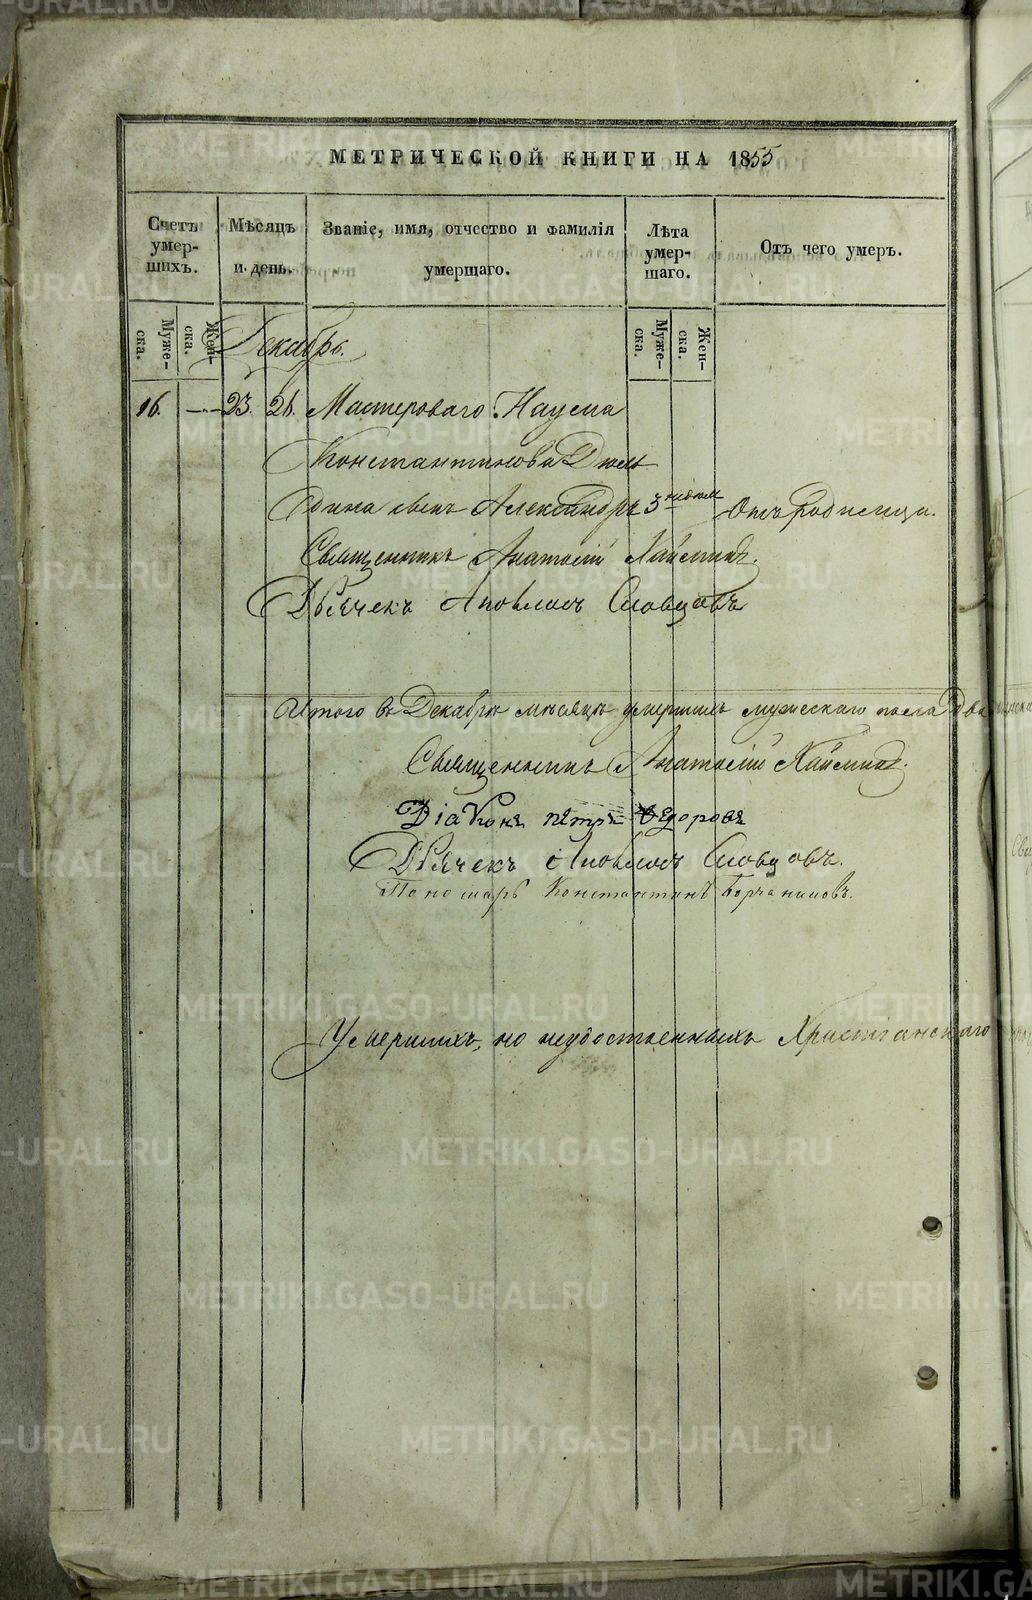 МЕТРИЧЕСКОЙ КНИГИ НА 1855
Счетъ умер-шихъ.
Мѣсяцъ и день.
Званіе, имя, отчество и фамилія умершаго.
Лѣта умер-шаго.
Отъ чего умеръ.
Муже-ска.
Жен-ска.
Муже-ска.
Жен-ска.
Декабрь.
16. — 23. 26. Мастероваго Наума
Константинова
сынъ Александръ 3 Отъ родимца.
Священникъ Анатолій
Дьячекъ Аполлосъ Словцовъ
Итого въ Декабрѣ мѣсяцѣ умершихъ мужескаго пола два
Священникъ Анатолій
Діаконъ Петръ Ѳедоровъ
Дьячекъ Аполлосъ Словцовъ.
Пономарь Константинъ
Умершихъ, но неудостоенныхъ Христіанскаго
METRIKI.GASO-URAL.RU